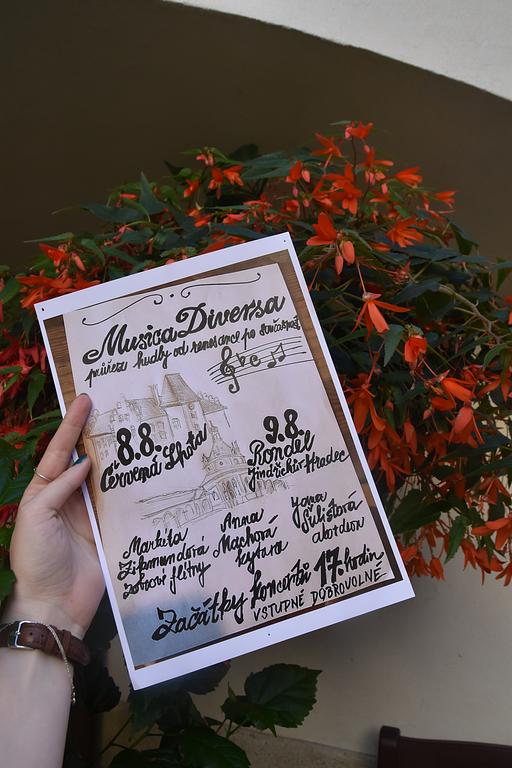 Musica Diversa
průřez hudby od renesance po současnost
8.8.
Červená Lhota
9.8.
Rondel
Jindřichův Hradec
Markéta
Zikmundová
zobcové flétny
Anna
Machová
kytara
Jana
Sulistová
akordeon
Začátky koncertů 17. hodin
VSTUPNÉ DOBROVOLNÉ